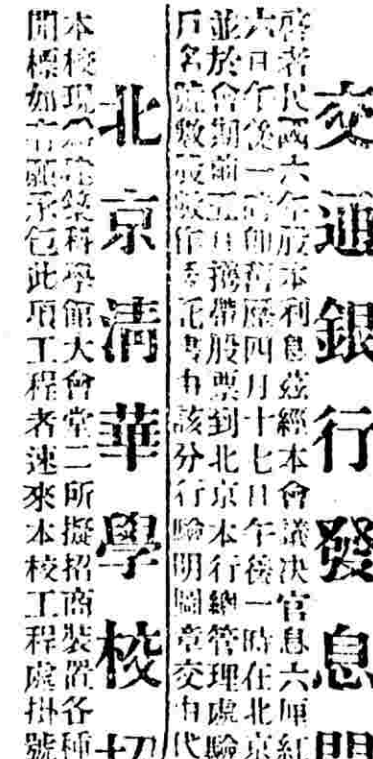 交通銀行發息
啓者民國六年股本利息茲經本會議決官息六厘紅
六日午後一時卽舊歷四月十七日午後一時在北京
並於會期前五日攜帶股票到北京本行總管理處驗
戶名號數股數作委託書由該分行驗明圖章交由代
北京清華學校招
本校現建築科學館大會堂二所擬招商裝置各種
開標如有願承包此項工程者速來本校工程處掛號